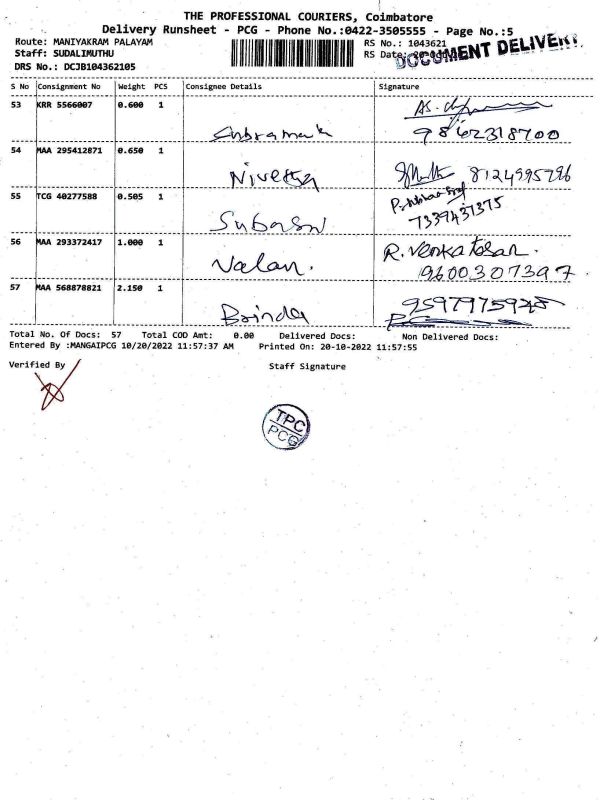 THE PROFESSIONAL COURIERS, Coimbatore
Delivery Runsheet - PCG - Phone No.:0422-3505555 - Page No.:5
Route: MANIYAKRAM PALAYAM
RS No.: 1043621
Staff: SUDALIMUTHU
RS Date:
DOCUMENT DELIVERY
DRS No.: DCJB104362105
S No Consignment No Weight PCS Consignee Details Signature
53 KRR 5566007 0.600 1
9862318700
54 MAA 295412871 0.650 1 Nivetha 8124995796
55 TCG 40277588 0.505 1
7339437375
56 MAA 293372417 1.000 1 Valan. R. Venkatesan.
9600307397
57 MAA 568878821 2.150 1 Brinda
Total No. Of Docs: 57 Total COD Amt: 0.00 Delivered Docs: Non Delivered Docs:
Entered By :MANGAIPCG 10/20/2022 11:57:37 AM Printed On: 20-10-2022 11:57:55
Verified By Staff Signature
TPC
PCG